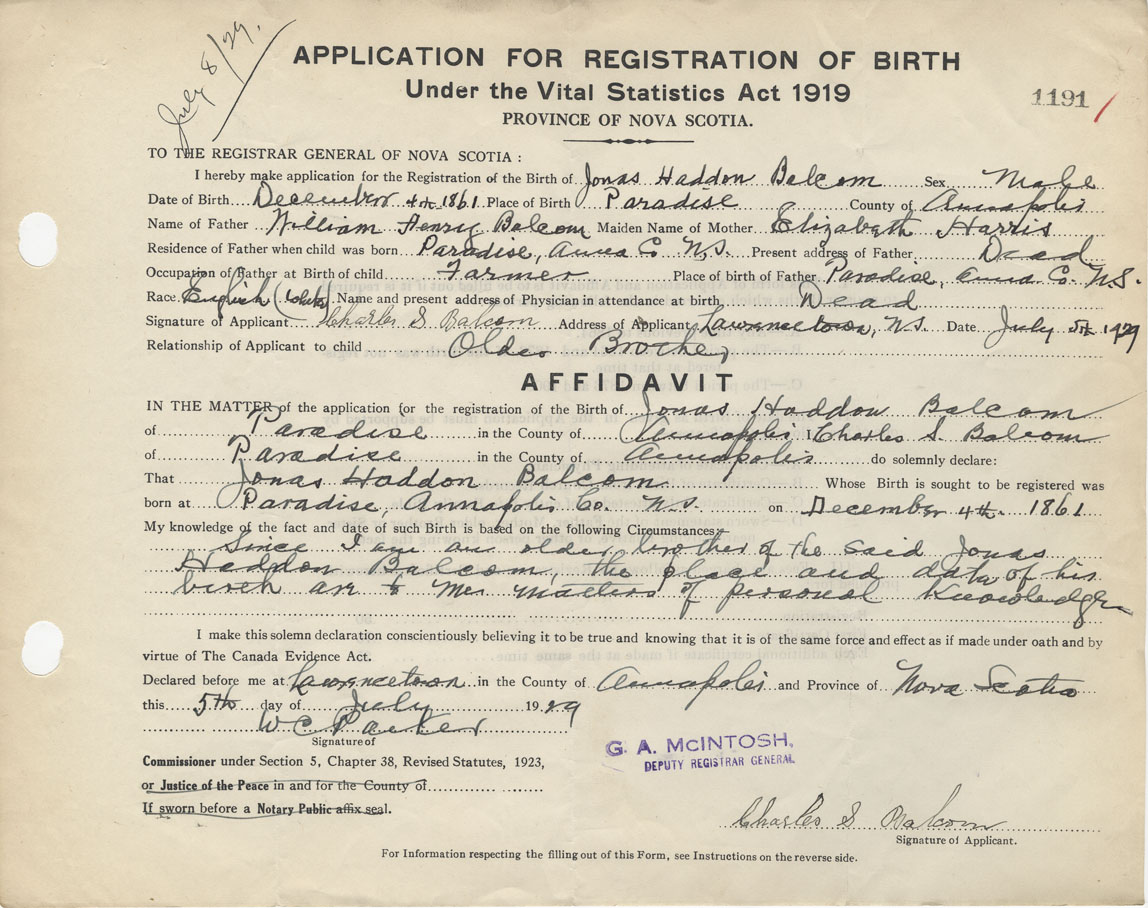 July 8/29.
APPLICATION FOR REGISTRATION OF BIRTH
Under the Vital Statistics Act 1919
1191 /
PROVINCE OF NOVA SCOTIA.
TO THE REGISTRAR GENERAL OF NOVA SCOTIA :
I hereby make application for the Registration of the Birth of Jonas Haddon Balcom Sex Male
Date of Birth December 4th 1861 Place of Birth Paradise County of Annapolis
Name of Father William Henry Balcom Maiden Name of Mother Elizabeth Harris
Residence of Father when child was born Paradise, Anna Co. N.S. Present address of Father Dead
Occupation of Father at Birth of child Farmer Place of birth of Father Paradise, Anna Co. N.S.
Race English (white) Name and present address of Physician in attendance at birth Dead
Signature of Applicant Charles S Balcom Address of Applicant Lawrencetown, N.S. Date July 5th 1929
Relationship of Applicant to child Older Brother
AFFIDAVIT
IN THE MATTER of the application for the registration of the Birth of Jonas Haddon Balcom
of Paradise in the County of Annapolis I Charles S. Balcom
of Paradise in the County of Annapolis do solemnly declare:
That Jonas Haddon Balcom Whose Birth is sought to be registered was
born at Paradise, Annapolis Co. N.S. on December 4th 1861
My knowledge of the fact and date of such Birth is based on the following Circumstances:
Since I am an older brother of the said Jonas
Haddon Balcom, the place and date of his
birth are to me matters of personal knowledge
I make this solemn declaration conscientiously believing it to be true and knowing that it is of the same force and effect as if made under oath and by
virtue of The Canada Evidence Act.
Declared before me at Lawrencetown in the County of Annapolis and Province of Nova Scotia
this 5th day of July 1929
W C Parker
Signature of
G. A. McINTOSH,
DEPUTY REGISTRAR GENERAL.
Commissioner under Section 5, Chapter 38, Revised Statutes, 1923,
or Justice of the Peace in and for the County of
If sworn before a Notary Public affix seal.
Charles S Balcom
Signature of Applicant.
For Information respecting the filling out of this Form, see Instructions on the reverse side.